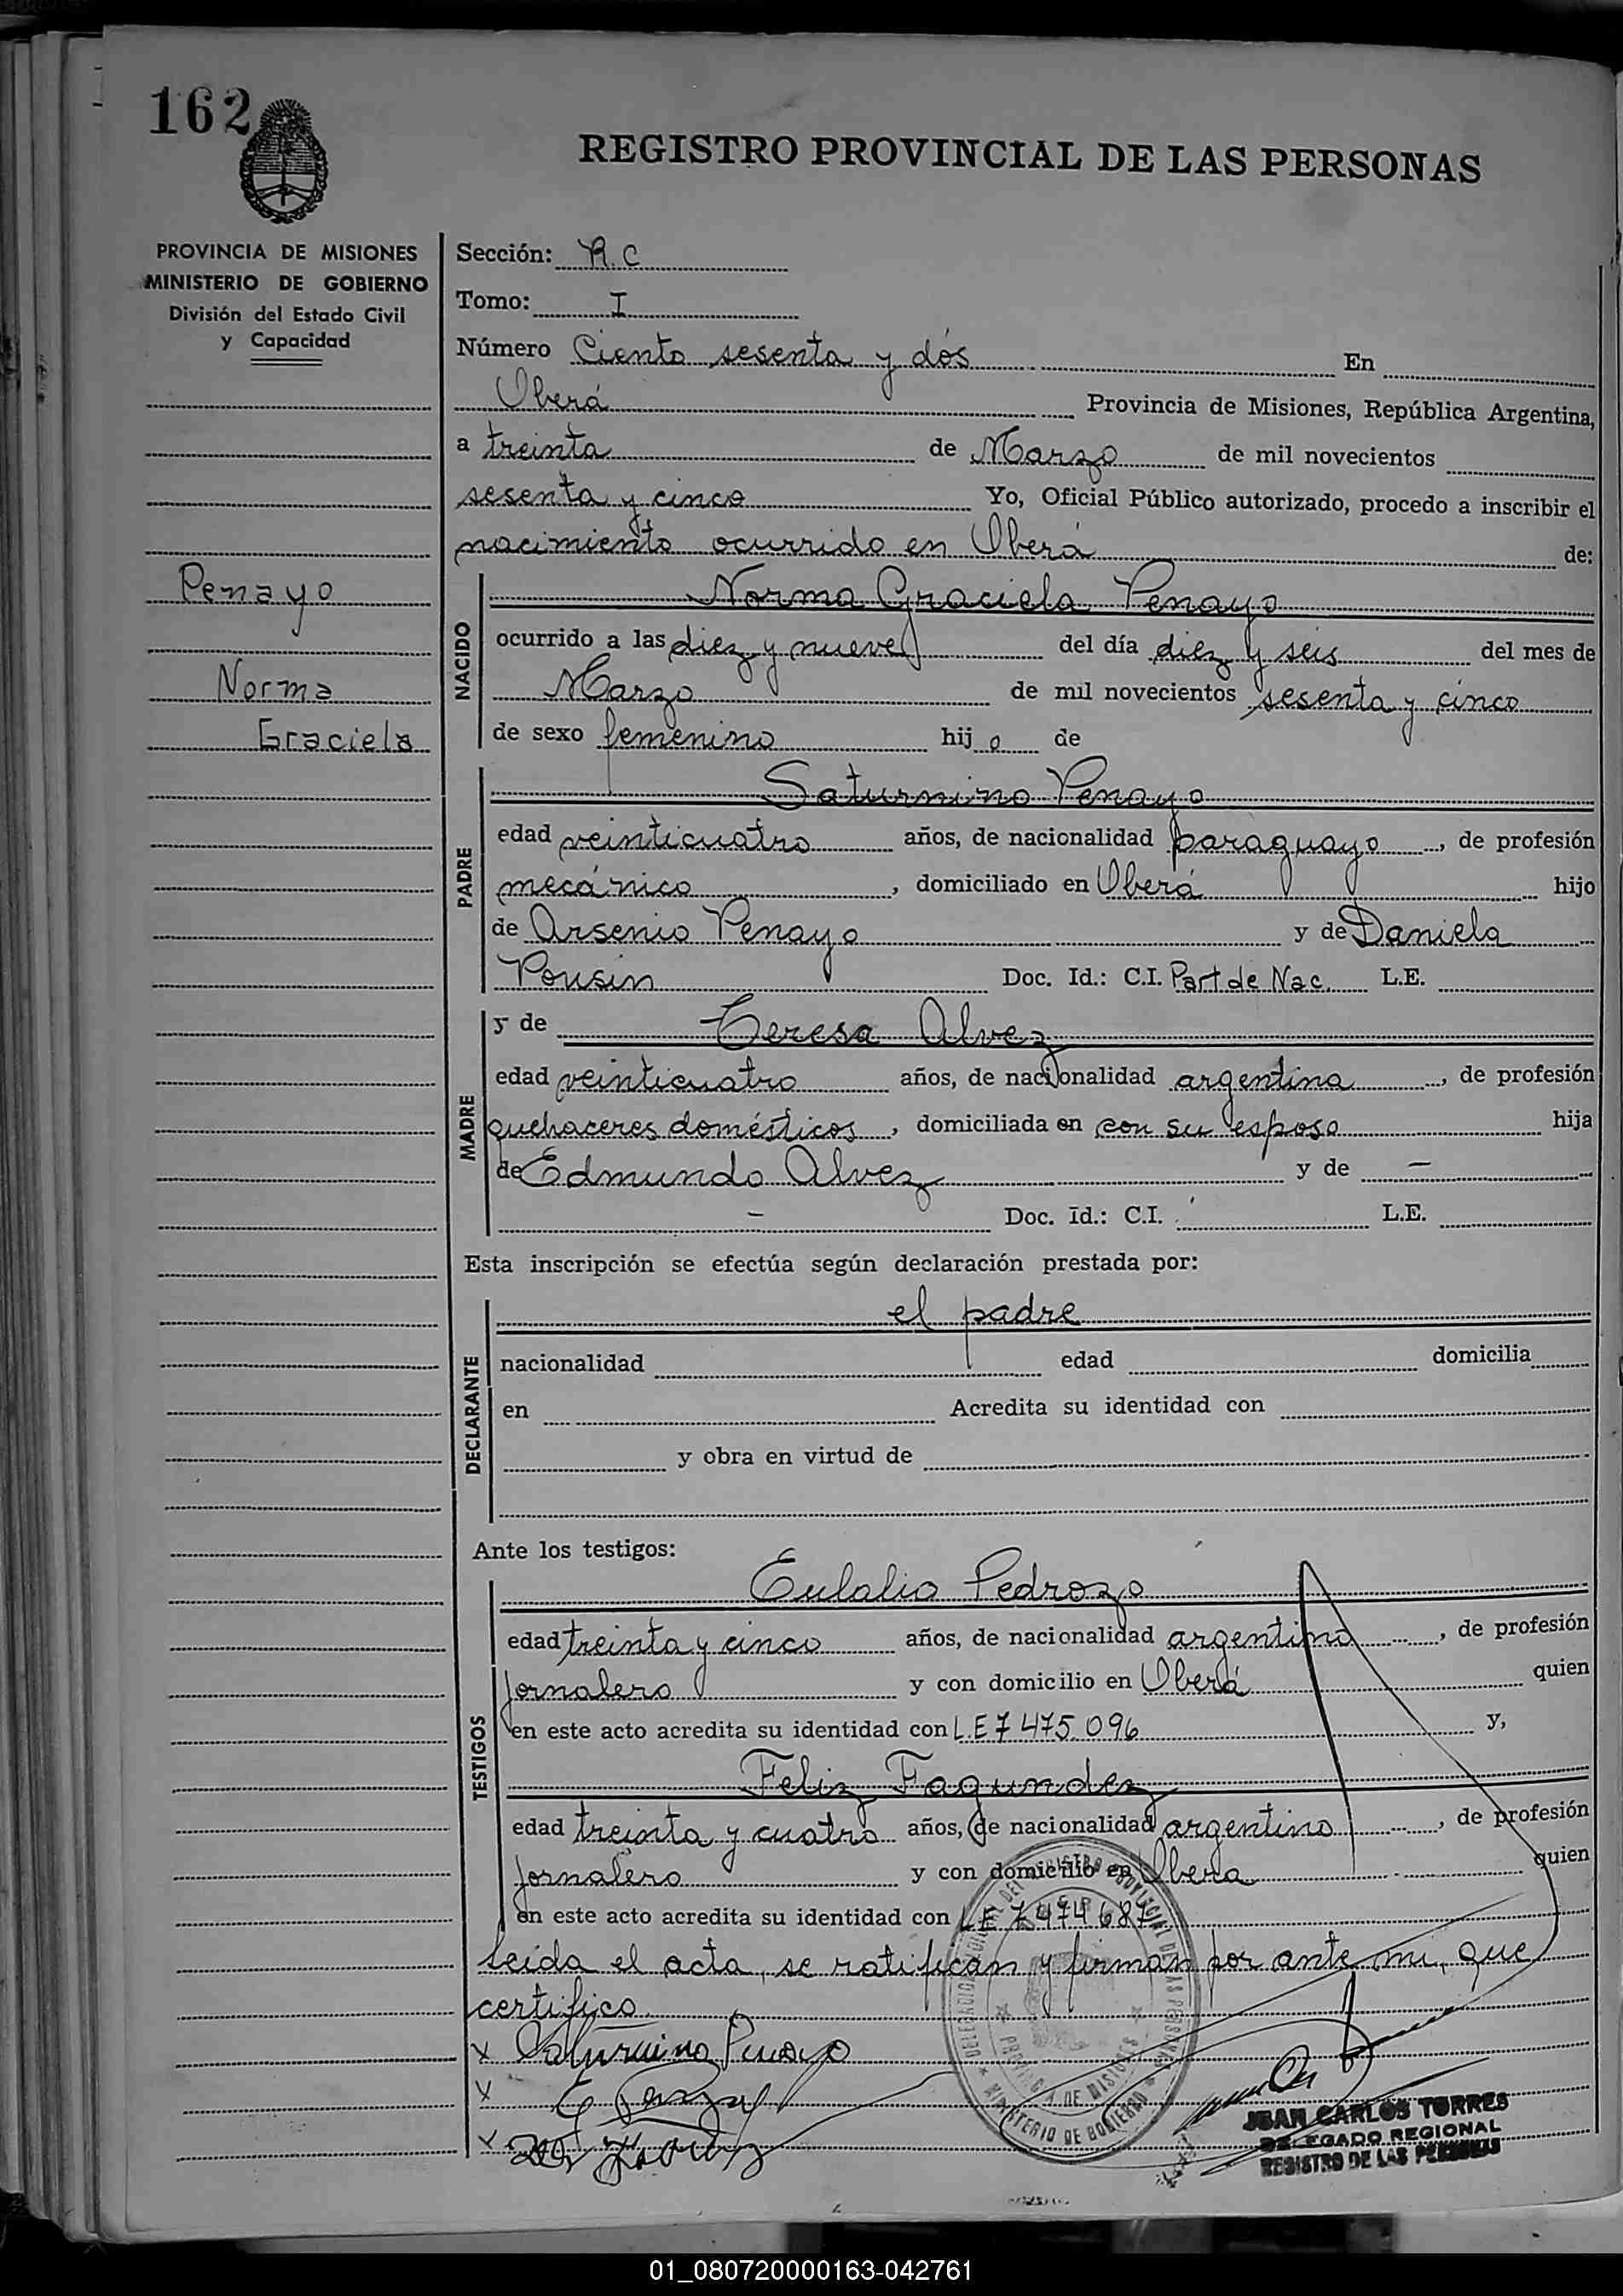 162
REGISTRO PROVINCIAL DE LAS PERSONAS
PROVINCIA DE MISIONES
MINISTERIO DE GOBIERNO
División del Estado Civil
y Capacidad
Penayo
Norma
Graciela
Sección: R.C
Tomo: I
Número Ciento sesenta y dós En
Oberá Provincia de Misiones, República Argentina,
a treinta de Marzo de mil novecientos
sesenta y cinco Yo, Oficial Público autorizado, procedo a inscribir el
nacimiento ocurrido en Oberá de:
NACIDO
Norma Graciela Penayo
ocurrido a las diez y nueve del día diez y seis del mes de
Marzo de mil novecientos sesenta y cinco
de sexo femenino hij o de
PADRE
Saturnino Penayo
edad veinticuatro años, de nacionalidad paraguayo, de profesión
mecánico, domiciliado en Oberá hijo
de Arsenio Penayo y de Daniela
Pousin Doc. Id.: C.I. Part de Nac. L.E.
MADRE
y de Teresa Alvez
edad veinticuatro años, de nacionalidad argentina, de profesión
quehaceres domésticos, domiciliada en con su esposo hija
de Edmundo Alvez y de —
— Doc. Id.: C.I. L.E.
Esta inscripción se efectúa según declaración prestada por:
DECLARANTE
el padre
nacionalidad edad domicilia
en Acredita su identidad con
y obra en virtud de
Ante los testigos:
TESTIGOS
Eulalio Pedrozo
edad treinta y cinco años, de nacionalidad argentino, de profesión
jornalero y con domicilio en Oberá quien
en este acto acredita su identidad con L.E 7 475.096 y,
Feliz Fagundez
edad treinta y cuatro años, de nacionalidad argentino, de profesión
jornalero y con domicilio en Oberá quien
en este acto acredita su identidad con L.E 7.474 687
Leida el acta, se ratifican y firman por ante mi, que
certifico.
x Saturnino Penayo
x
x
MINISTERIO DE GOBIERNO
PROVINCIA DE MISIONES
JUAN CARLOS TORRES
DELEGADO REGIONAL
REGISTRO DE LAS PERSONAS
01_080720000163-042761